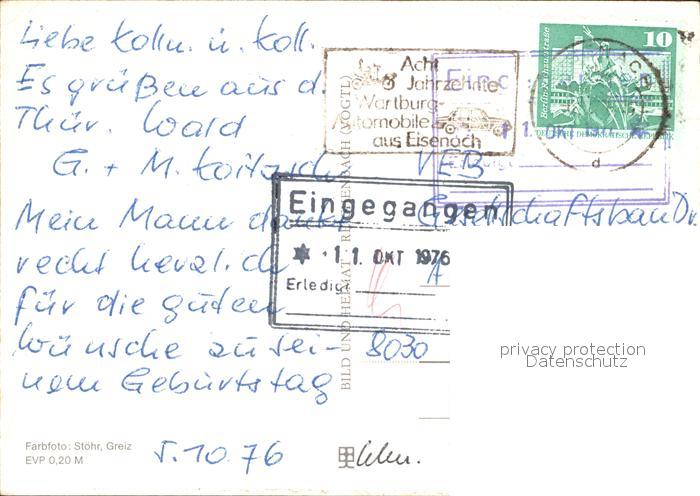 Liebe Kolln. u. Koll.
Es grüßen aus d.
Thür. Wald
G. + M. Koitzsch
Mein Mann dankt
recht herzlich
für die guten
Wünsche zu sei-
nem Geburtstag
5.10.76
Farbfoto: Stöhr, Greiz
EVP 0,20 M
BILD UND HEIMAT REICHENBACH (VOGTL)
Acht
Jahrzehnte
Wartburg-
Automobile
aus Eisenach
10
Berlin-Rathausstraße
DEUTSCHE DEMOKRATISCHE REPUBLIK
d
Eingegangen
11. OKT 1976
Erledigt
VEB
Gesellschaftsbau Dr.
A
8030
privacy protection
Datenschutz